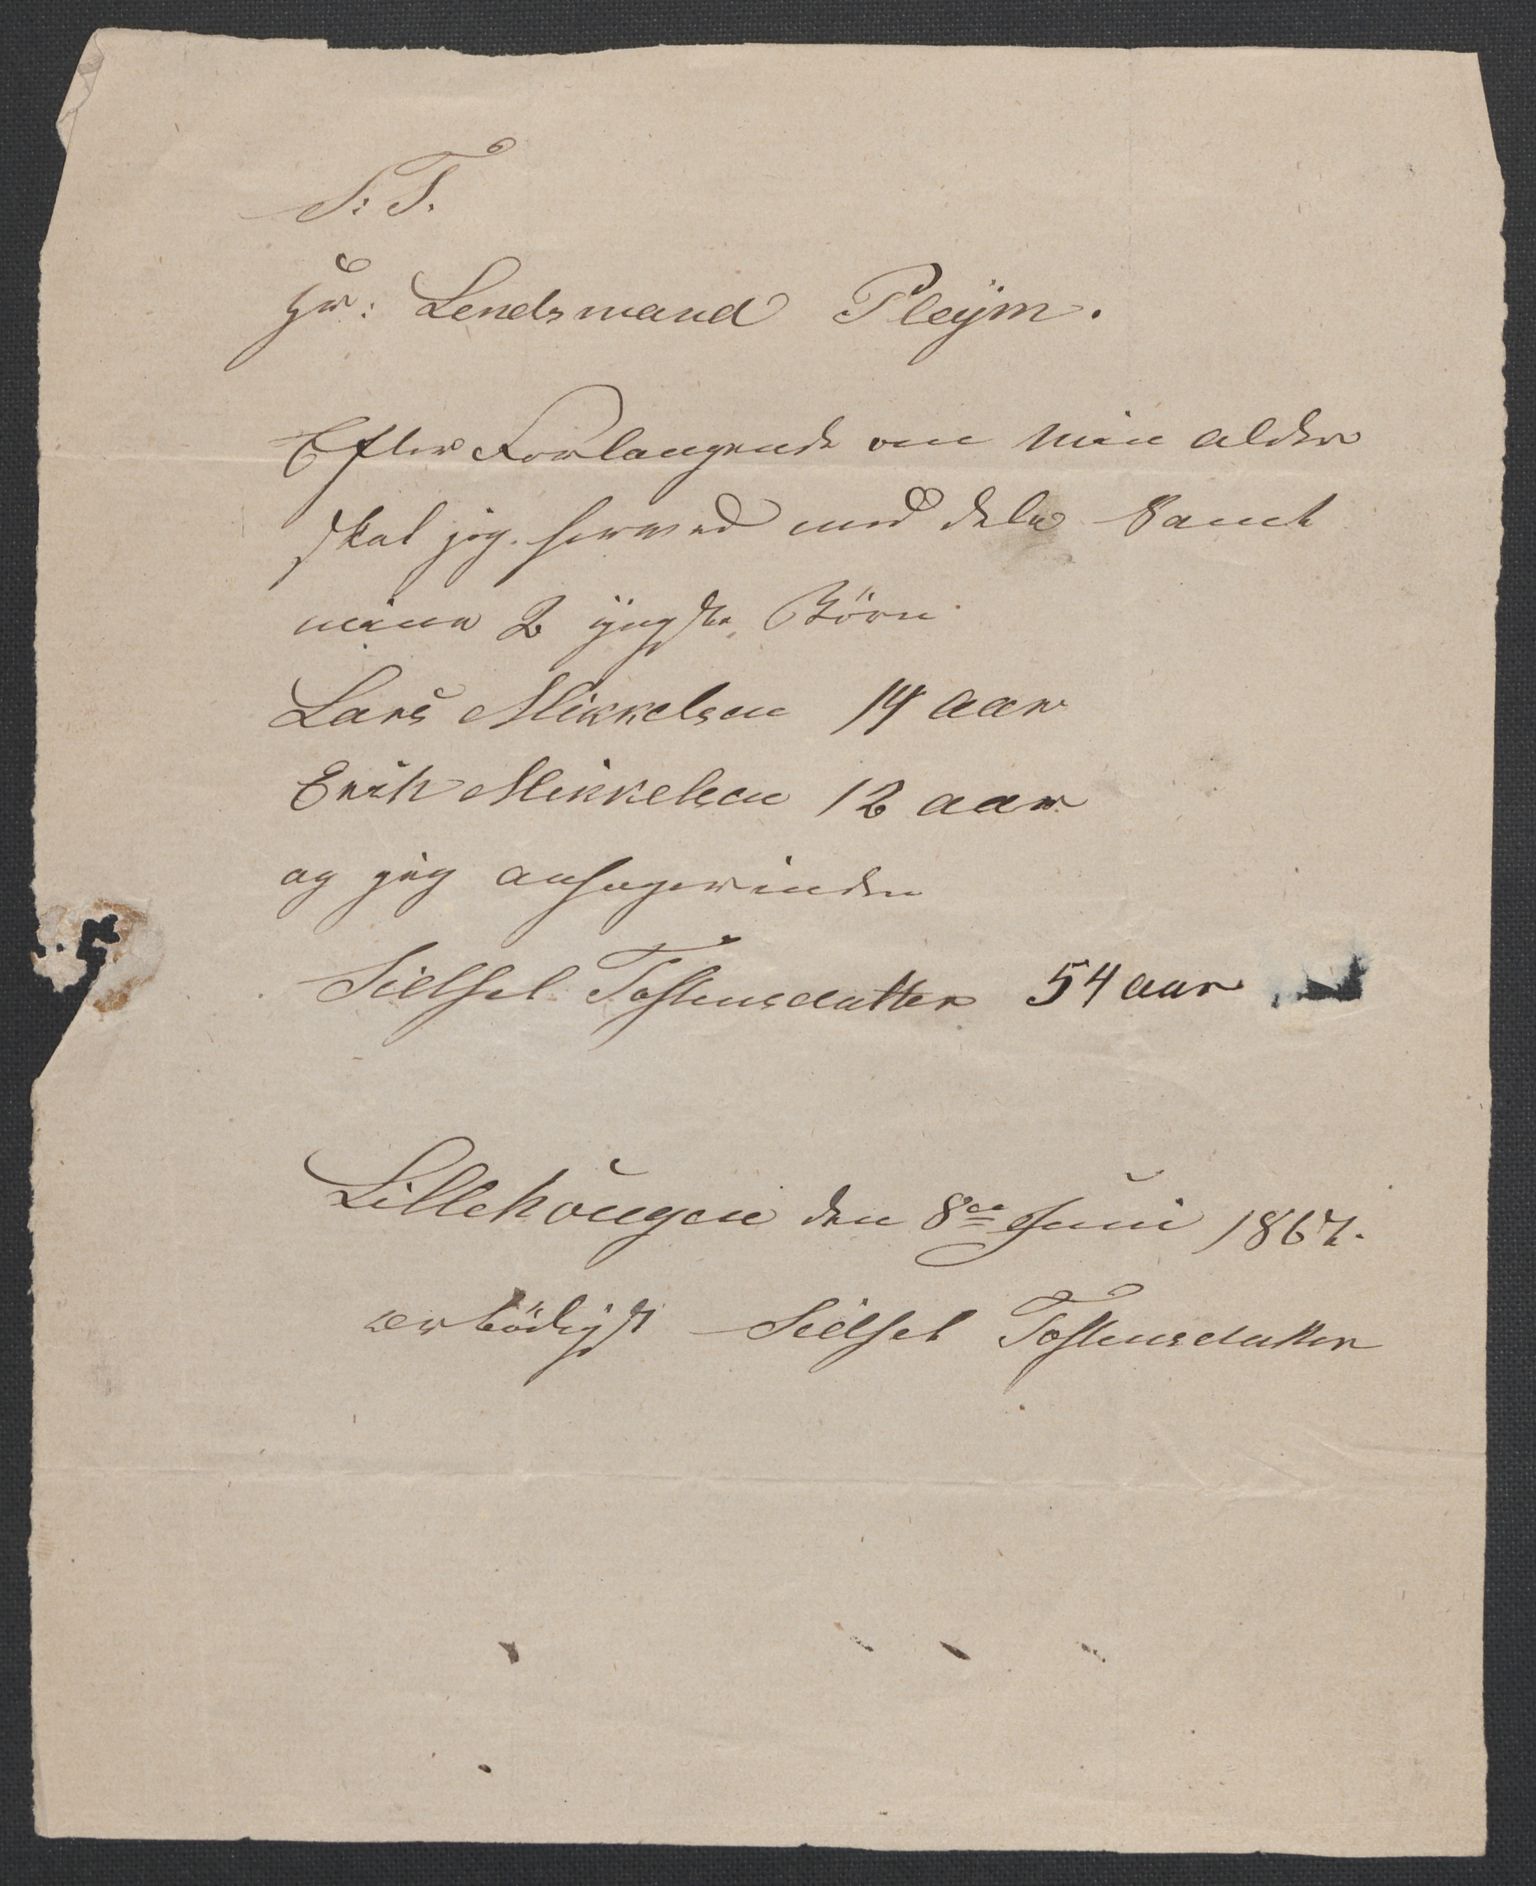 S: T.
Hr: Lendsmand Pleÿm.
Efter Forlangende om min alder
skal jeg herved med dele Samt
mine 2 ÿngste Börn
Lars Mikkelsen 14 aar
Erik Mikkelsen 12 aar
og jeg
Sidsel Tostensdatter 54 aar
Lillehougen den 8de Juni 1867.
ærbödigst Sidsel Tostensdatter